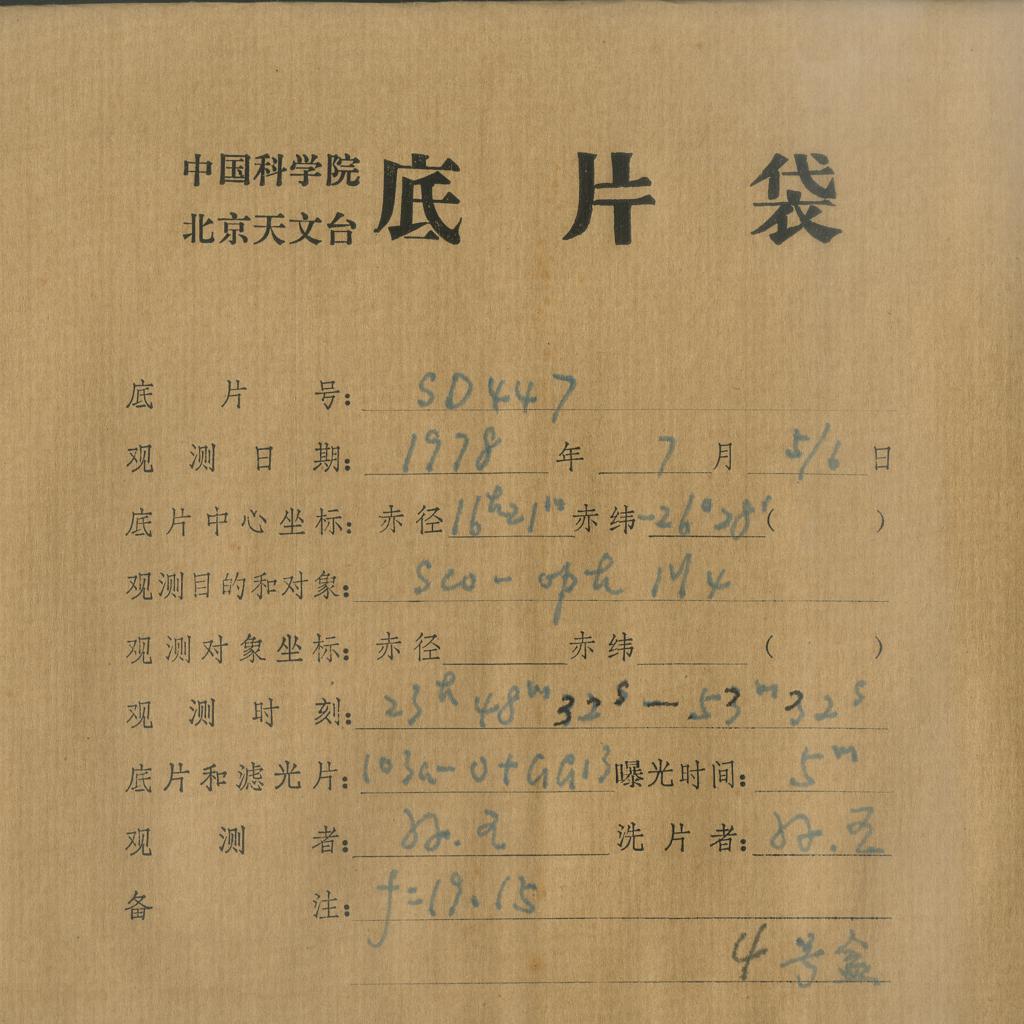 中国科学院
北京天文台
底片袋
底片号：SD447
观测日期：1978年7月5/6日
底片中心坐标：赤径16h21m赤纬-26°28'（ ）
观测目的和对象：Sco-oph M4
观测对象坐标：赤径 赤纬 （ ）
观测时刻：23h48m32s—53m32s
底片和滤光片：103a-O+GG13曝光时间：5m
观测者： 洗片者：
备注：f=19.15
4号盒